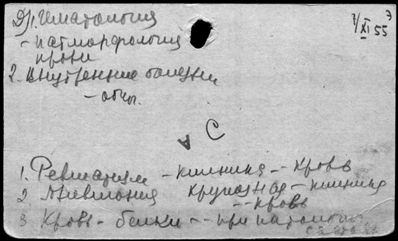 1. Гематология
7/XI 55 э
- патморфология
крови
2. Внутренние болезни
- общ.
С
1. Ревматизм - клиника -- кровь
2. Пневмония крупозная - клиника
-- кровь
3 Кровь - белки -- при патологии